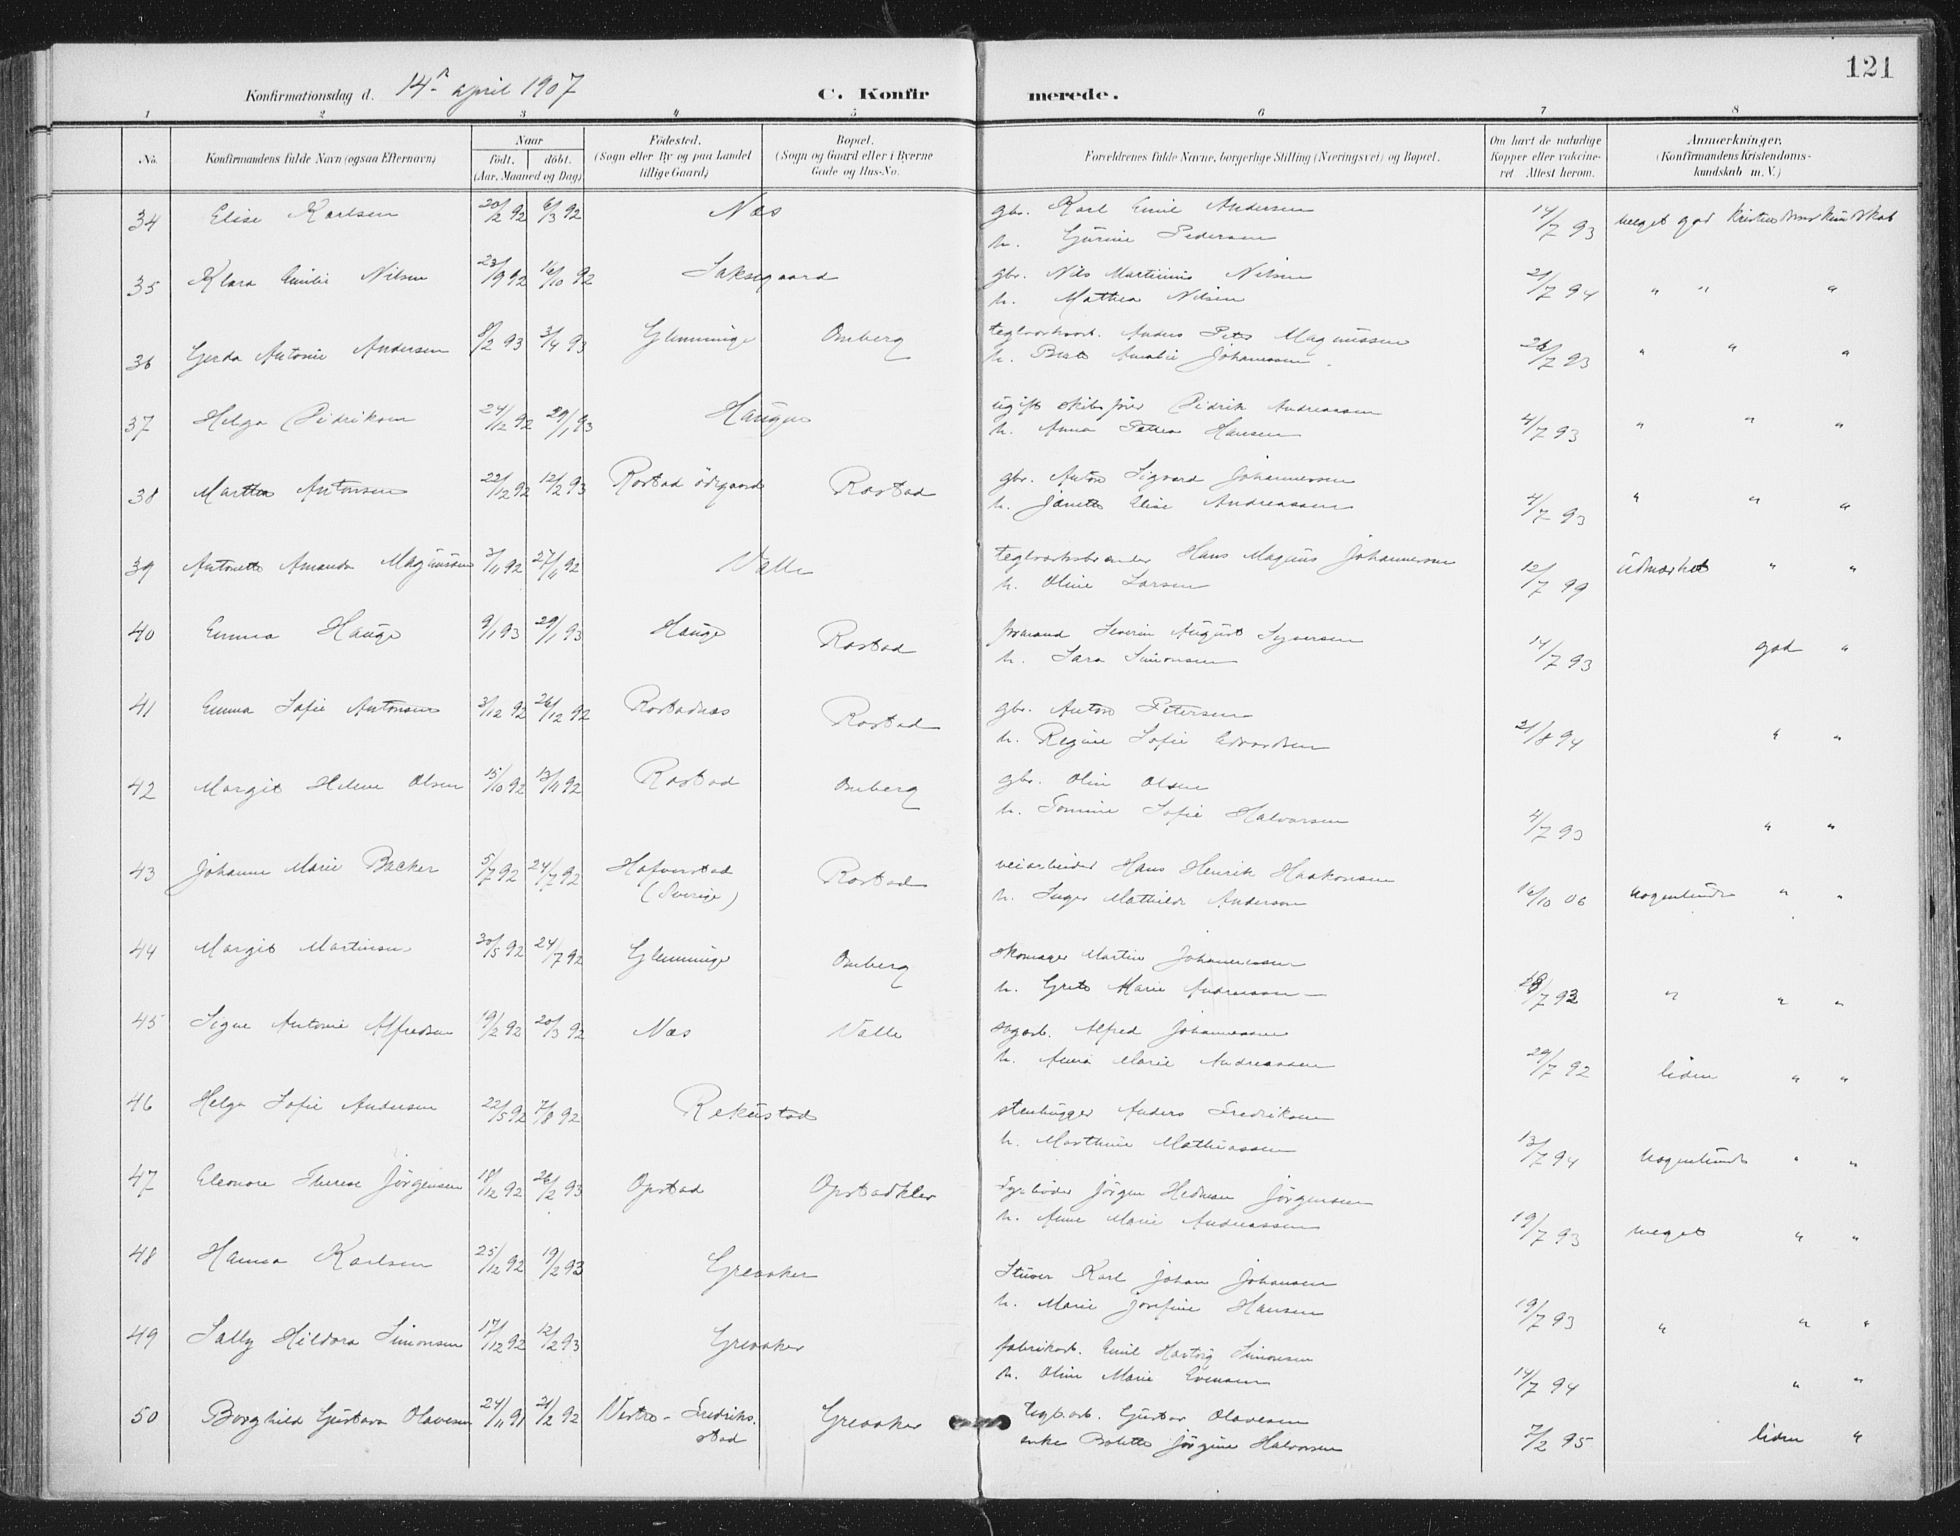 121
Konfirmationsdag d. 14de april 1907
C. Konfirmerede.
1 2 3 4 5 6 7 8
No. Konfirmandens fulde Navn (ogsaa Efternavn) Naar født. døbt. (Aar, Maaned og Dag) Fødested. (Sogn eller By og paa Landet tillige Gaard) Bopæl. (Sogn og Gaard eller i Byerne Gade og Hus-No. Forældrenes fulde Navne, borgerlige Stilling (Næringsvei) og Bopæl. Om havt de naturlige Kopper eller vakcineret Attest herom. Anmærkninger, (Konfirmandens Kristendomskundskab m. V.)
34 Elise Karlsen 20/2 92 6/3 92 Næs gbr. Karl Emil Andersen 14/7 93 meget god kristendomskundskab
h. Gurine Pedersen
35 Klara Emilie Nilsen 23/9 92 16/10 92 Saksegaard gbr. Nils Martinius Nilsen 21/7 94 " " "
h. Mathea Nilsen
36 Gerda Antonie Andersen 8/2 93 3/4 93 Glemminge Omberg teglverksarb. Anders Peter Magnussen 26/7 93 " " "
h. Berte Amalie Johannessen
37 Helga Didriksen 24/12 92 29/1 93 Haugen ugift skibsfører Didrik Andreassen 4/7 93 " " "
h. Anna Petrea Hansen
38 Marthea Antonsen 22/12 92 12/2 93 Rostad ødegaard Rostad gbr. Anton Sigvard Johannessen 4/7 93 " " "
h. Janette Elise Andreassen
39 Antonette Amanda Magnussen 3/11 92 27/11 92 Valle teglverksbrænder Hans Magnus Johannessen 12/7 99 udmærket " "
h. Oline Larsen
40 Emma Hauge 9/1 93 29/1 93 Hauge Rostad formand Severin August Syversen 14/7 93 god "
h. Sara Simonsen
41 Emma Sofie Antonsen 3/12 92 26/12 92 Rostadnæs Rostad gbr. Anton Petersen 21/8 94 " "
h. Regine Sofie Edvardsen
42 Margit Helene Olsen 15/10 92 13/11 92 Rostad Omberg gbr. Olin Olsen 4/7 93 " "
h. Tomine Sofie Halvorsen
43 Johanne Marie Backer 5/7 92 24/7 92 Hafverstad (Sverige) Rostad veiarbeider Hans Henrik Haakonsen 16/10 06 nogenlunde " "
h. Inger Mathilde Anderson
44 Margit Martinsen 30/5 92 24/7 92 Glemminge Omberg skomager Martin Johannessen 18/7 92 " " "
h. Grete Marie Andreassen
45 Signe Antonie Alfredsen 19/2 92 20/3 92 Næs Valle sagarb. Alfred Johannessen 29/7 92 liden " "
h. Anna Marie Andreassen
46 Helga Sofie Andersen 22/5 92 7/8 92 Rekustad stenhugger Anders Fredriksen 13/7 94 nogenlunde " "
h. Marthine Mathiassen
47 Eleonore Therese Jørgensen 18/12 92 26/2 93 Opstad Opstadklev fyrbøder Jørgen Hedman Jørgensen 19/7 93 meget " "
h. Anne Marie Andreassen
48 Hanna Karlsen 25/12 92 19/2 93 Greaaker Stuver Karl Johan Johansen 19/7 93 " " "
h. Marie Josefine Hansen
49 Sally Hildora Simonsen 17/12 92 12/2 93 Greaaker fabrikarb. Emil Hartvig Simonsen 14/7 94 " "
h. Oline Marie Evensen
50 Borghild Gustava Olavesen 24/11 91 21/2 92 Vestre-Fredriksstad Greaaker teglarb. Gustav Olavesen 7/2 95 liden "
enke Bolette Jørgine Halvorsen